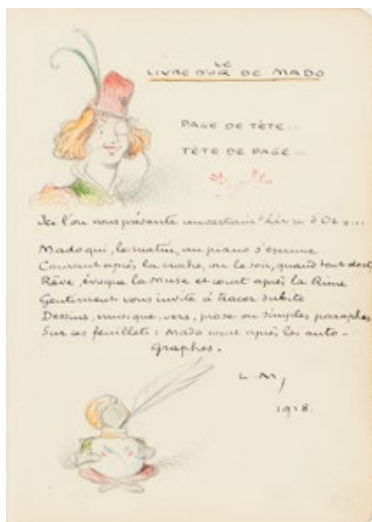 LE
LIVRE D'OR DE MADO
PAGE DE TÊTE...
TÊTE DE PAGE...
Ici l'on vous présente un certain "Livre d'Or"...
Mado qui, le matin, au piano s'escrime
Courant après la croche, ou le soir, quand tout dort,
Rêve, évoque la Muse et court après la Rime
Gentiment vous invite à tracer subito
Dessins, musique, vers, prose ou simples paraphes
Sur ces feuillets : Mado court après les auto-
graphes.
L. M.
1918.